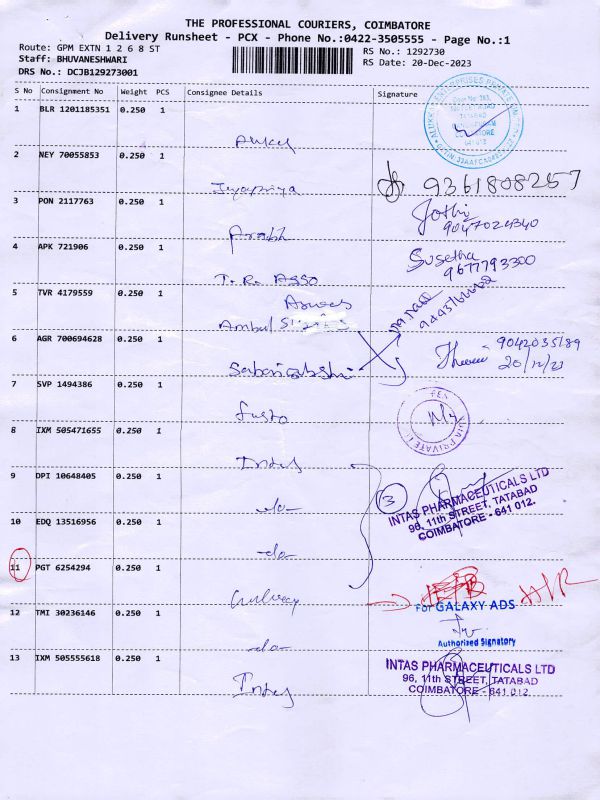 THE PROFESSIONAL COURIERS, COIMBATORE
Delivery Runsheet - PCX - Phone No.:0422-3505555 - Page No.:1
Route: GPM EXTN 1 2 6 8 ST
RS No.: 1292730
Staff: BHUVANESHWARI
RS Date: 20-Dec-2023
DRS No.: DCJB129273001
S No Consignment No Weight PCS Consignee Details Signature
1 BLR 1201185351 0.250 1
TATABAD
641 012
2 NEY 70055853 0.250 1 Jeyapriya 9361808257
3 PON 2117763 0.250 1 Jothi
9047024340
4 APK 721906 0.250 1 T. R. Asso Susetha
9677793300
5 TVR 4179559 0.250 1 Ambul
6 AGR 700694628 0.250 1 9042035189
20/12/23
7 SVP 1494386 0.250 1
8 IXM 505471655 0.250 1 Intas
9 DPI 10648405 0.250 1 -do- 3
INTAS PHARMACEUTICALS LTD
96, 11th STREET, TATABAD
COIMBATORE - 641 012.
10 EDQ 13516956 0.250 1 -do-
11 PGT 6254294 0.250 1
For GALAXY ADS
12 TMI 30236146 0.250 1 -do-
Authorised Signatory
13 IXM 505555618 0.250 1 Intas
INTAS PHARMACEUTICALS LTD
96, 11th STREET, TATABAD
COIMBATORE - 641 012.